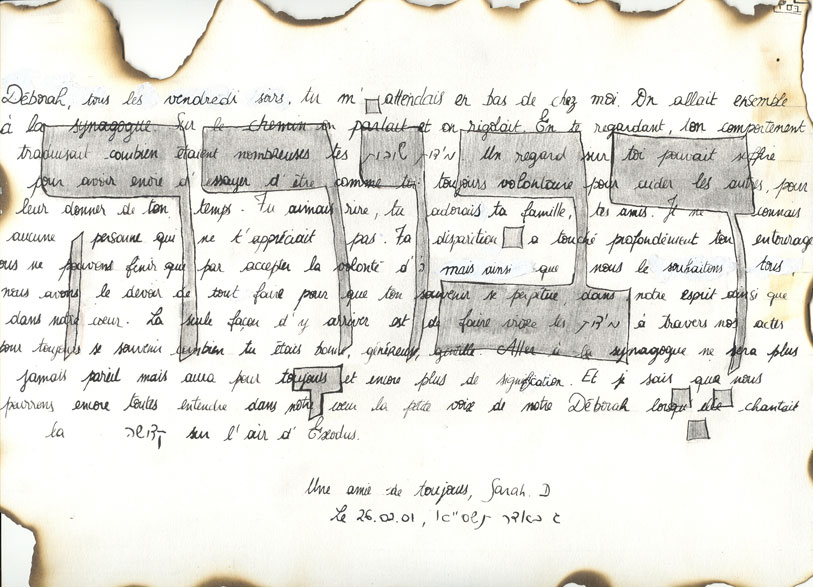 Déborah, tous les vendredi soirs, tu m'attendais en bas de chez moi. On allait ensemble
à la synagogue. Sur le chemin on parlait et on rigolait. En te regardant, ton comportement
traduisait combien étaient nombreuses tes מידות טובות. Un regard sur toi pouvait suffire
pour avoir envie d'essayer d'être comme toi toujours volontaire pour aider les autres, pour
leur donner de ton temps. Tu aimais rire, tu adorais ta famille, tes amis. Je ne connais
aucune personne qui ne t'appréciait pas. Ta disparition a touché profondément ton entourage
ous ne pouvons finir que par accepter la volonté d' mais ainsi que nous le souhaitons tous,
nous avons le devoir de tout faire pour que ton souvenir se perpétue dans notre esprit ainsi que
dans notre coeur. La seule façon d'y arriver est de faire vivre les מידות à travers nos actes
our toujours se souvenir combien tu étais bonne, généreuse, gentille. Aller à la synagogue ne sera plus
jamais pareil mais aura pour toujours et encore plus de signification. Et je sais que nous
pourrons encore toutes entendre dans notre coeur la petite voix de notre Déborah lorsqu'elle chantait
la קדושה sur l'air d'Exodus.
Une amie de toujours, Sarah. D
Le 26.02.01, ג באדר תשס"א